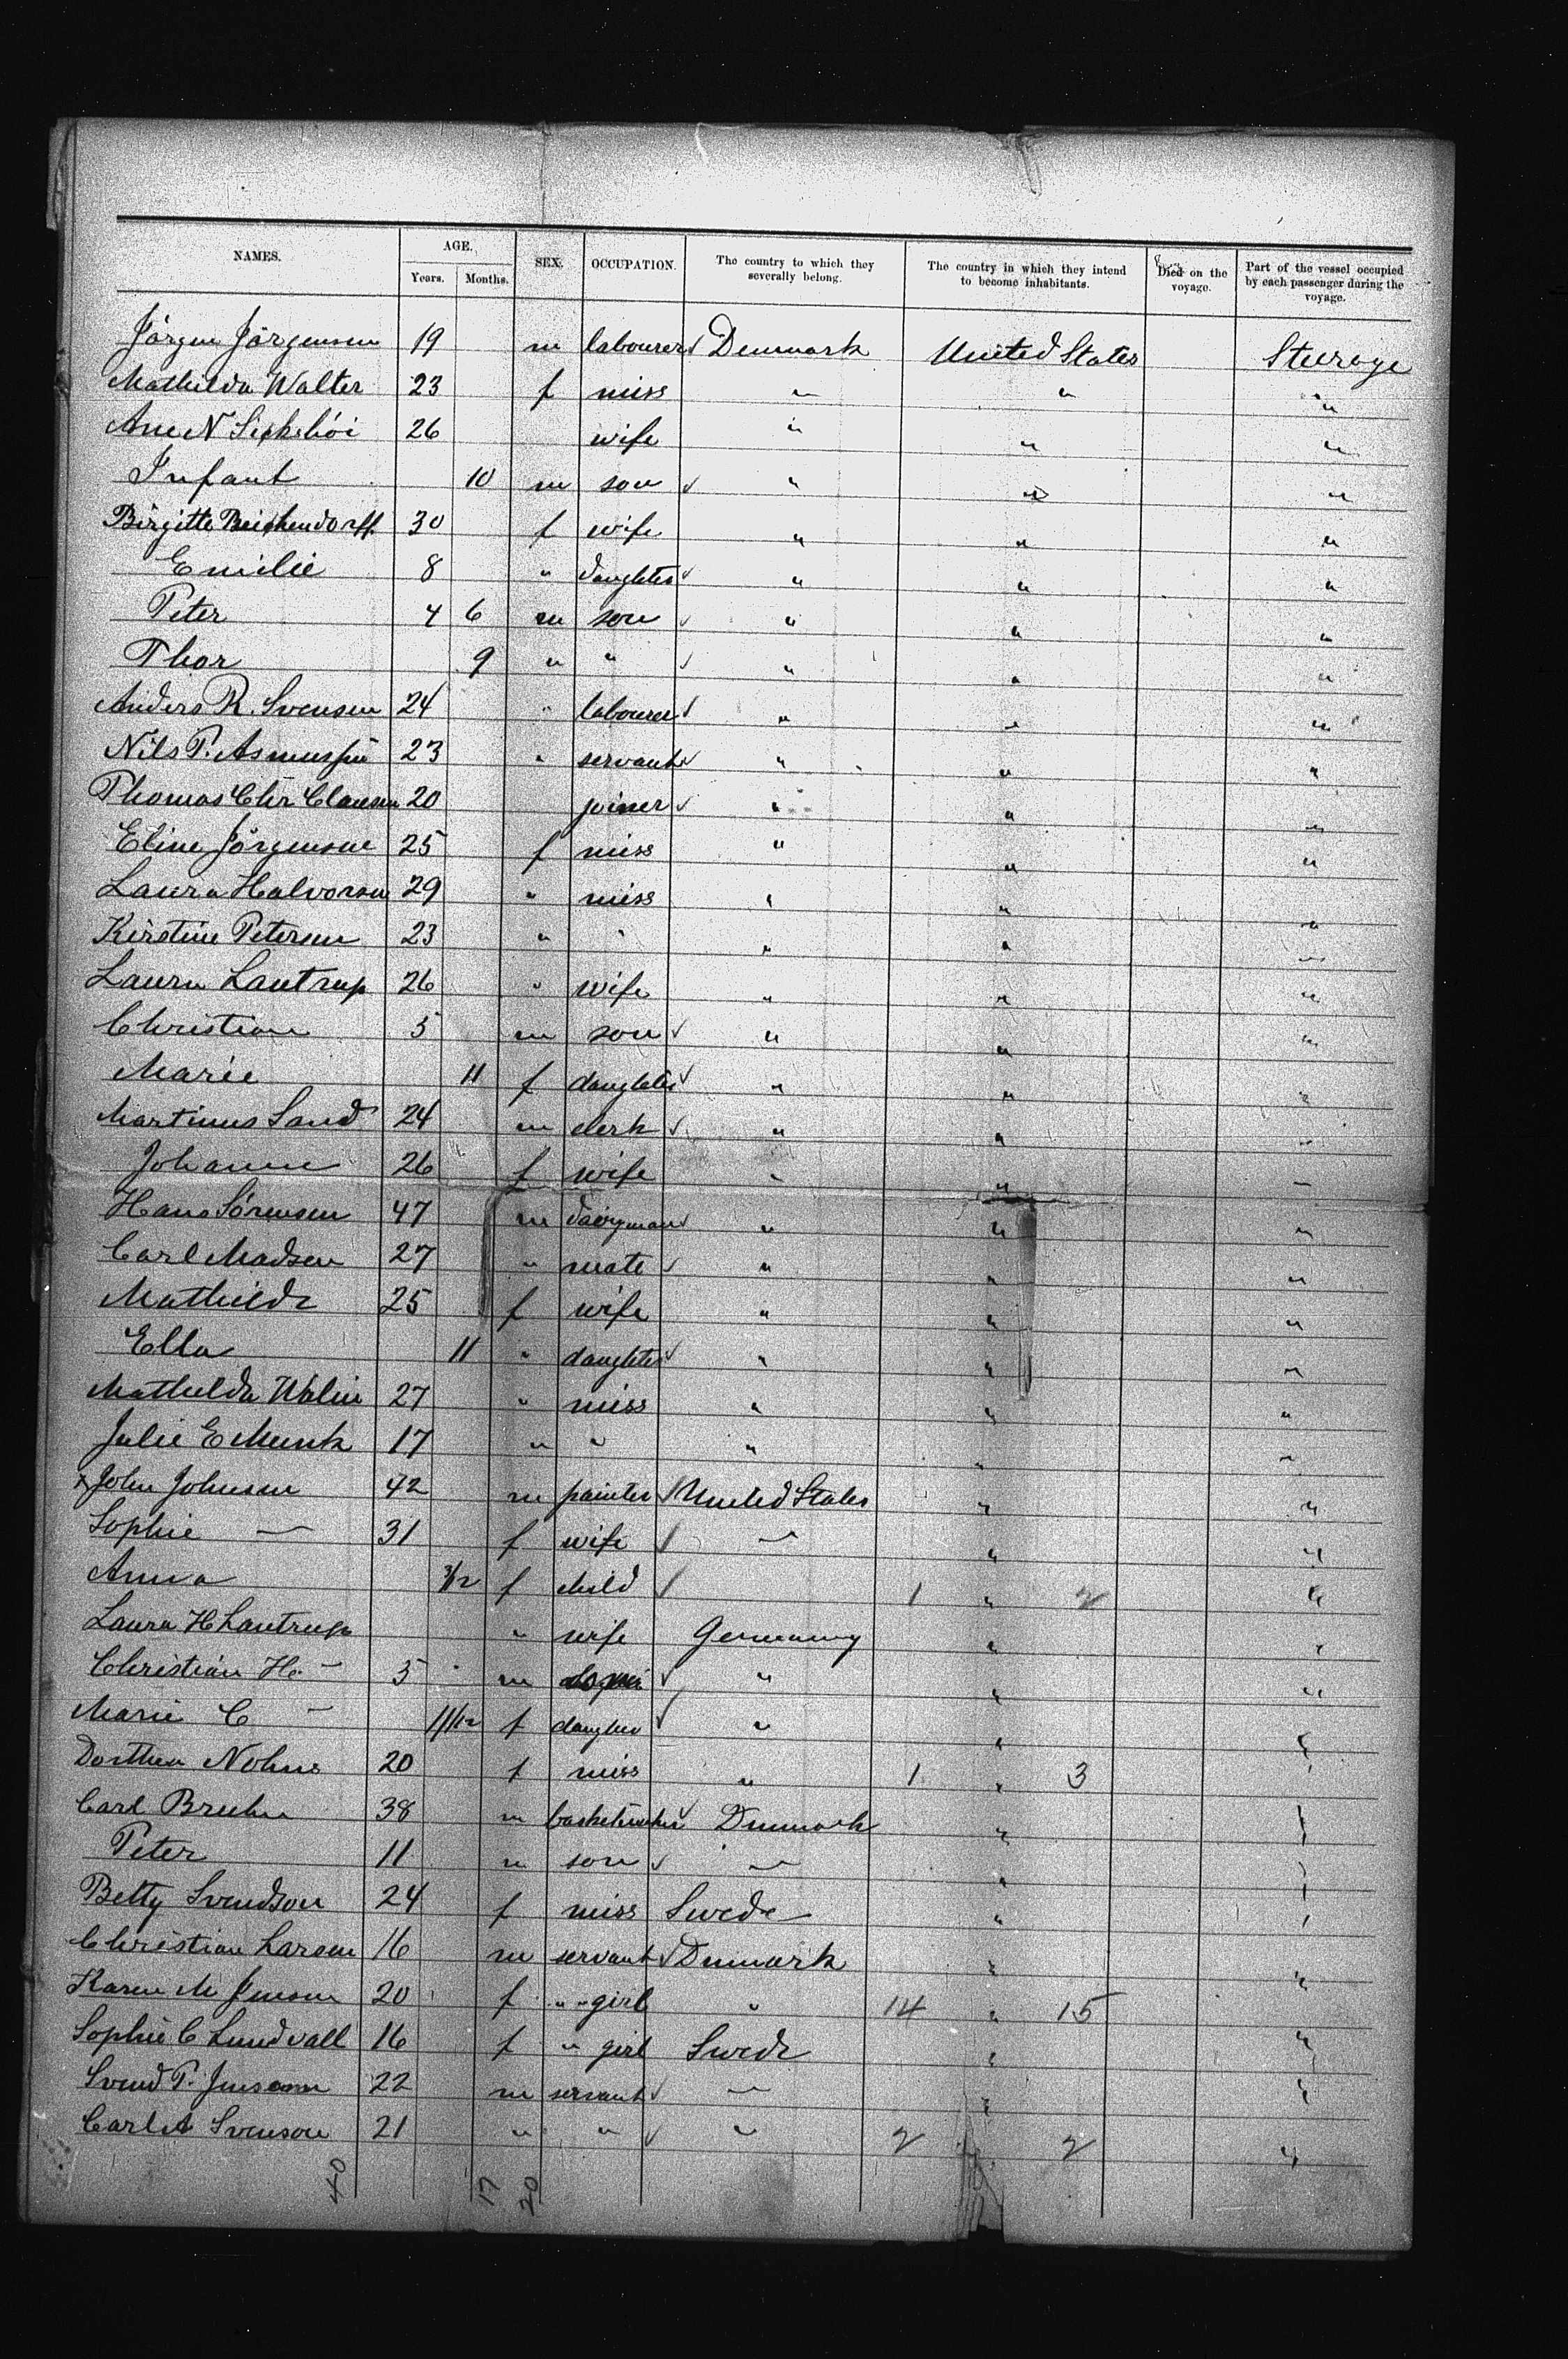 NAMES. AGE. SEX. OCCUPATION. The country to which they severally belong. The country in which they intend to become inhabitants. Died on the voyage. Part of the vessel occupied by each passenger during the voyage.
Years. Months.
Jörgen Jörgensen 19 m labourer √ Denmark United States Steerage
Mathilda Walter 23 f miss " " "
Ane N 26 wife " " "
Infant 10 m son √ " " "
Birgitte 30 f wife " " "
Emilie 8 " daughter √ " " "
Peter 4 6 m son √ " " "
Thor 9 " " √ " " "
Anders R. Svensen 24 " labourer √ " " "
Nils P. Asmussen 23 " servant √ " " "
Thomas Chr Clausen 20 joiner √ " " "
Eline Jörgensen 25 f miss " " "
Laura Halvorsen 29 " miss " " "
Kirstine Petersen 23 " " " " "
Laura Lautrup 26 " wife " " "
Christian 5 m son √ " " "
Marie 11 f daughter √ " " "
Martinus Sand 24 m clerk √ " " "
Johanne 26 f wife " " "
Hans Sörensen 47 m dairyman √ " " "
Carl Madsen 27 " mate √ " " "
Mathilde 25 f wife " " "
Ella 11 " daughter √ " " "
Mathilda 27 " miss " " "
Julie E Munk 17 " " " " "
x John Johnson 42 m painter √ United States " "
Sophie — 31 f wife √ — " "
Anna 3/12 f child √ 1 " 2 "
Laura H Lautrup " wife Germany " "
Christian H. — 5 m √ " " "
Marie C — 11/12 f daughter √ " " "
Dorthea Nohns 20 f miss " 1 " 3 "
Carl Bruhn 38 m basketmaker √ Denmark " "
Peter 11 m son √ — " "
Betty Svendson 24 f miss Swede " "
Christian Larsen 16 m servant √ Denmark " "
Karen M Jenson 20 f " girl " 14 " 15 "
Sophie C Lundvall 16 f " girl Swede " "
Svend P. 22 m servant √ — " "
Carl A Svenson 21 " " √ " 2 " 2 "
40 17 20